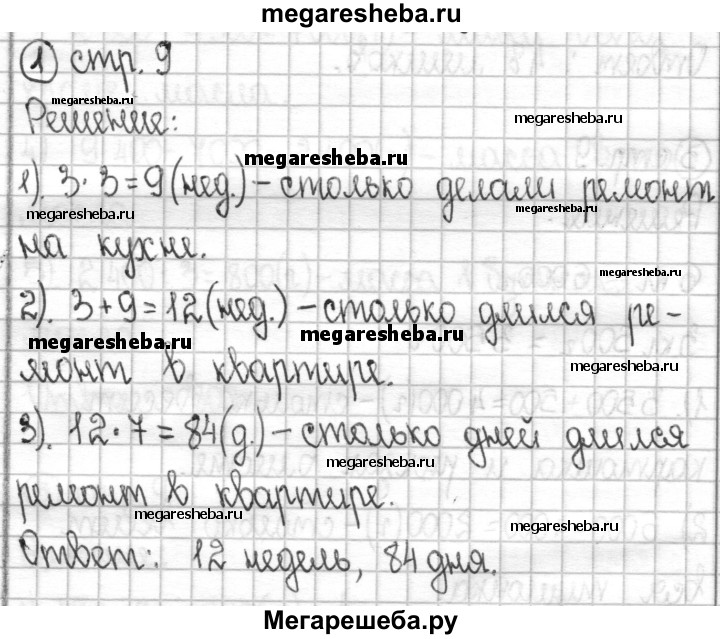 megaresheba.ru
1 стр. 9
megaresheba.ru
Решение:
megaresheba.ru
megaresheba.ru
1). 3·3=9(нед.)-столько делали ремонт
megaresheba.ru
megaresheba.ru
на кухне.
megaresheba.ru
2). 3+9=12(нед.)-столько длился ре-
megaresheba.ru
megaresheba.ru
монт в квартире.
megaresheba.ru
3). 12·7=84(д.)-столько дней длился
megaresheba.ru
ремонт в квартире.
megaresheba.ru
megaresheba.ru
Ответ: 12 недель, 84 дня.
Мегарешеба.ру